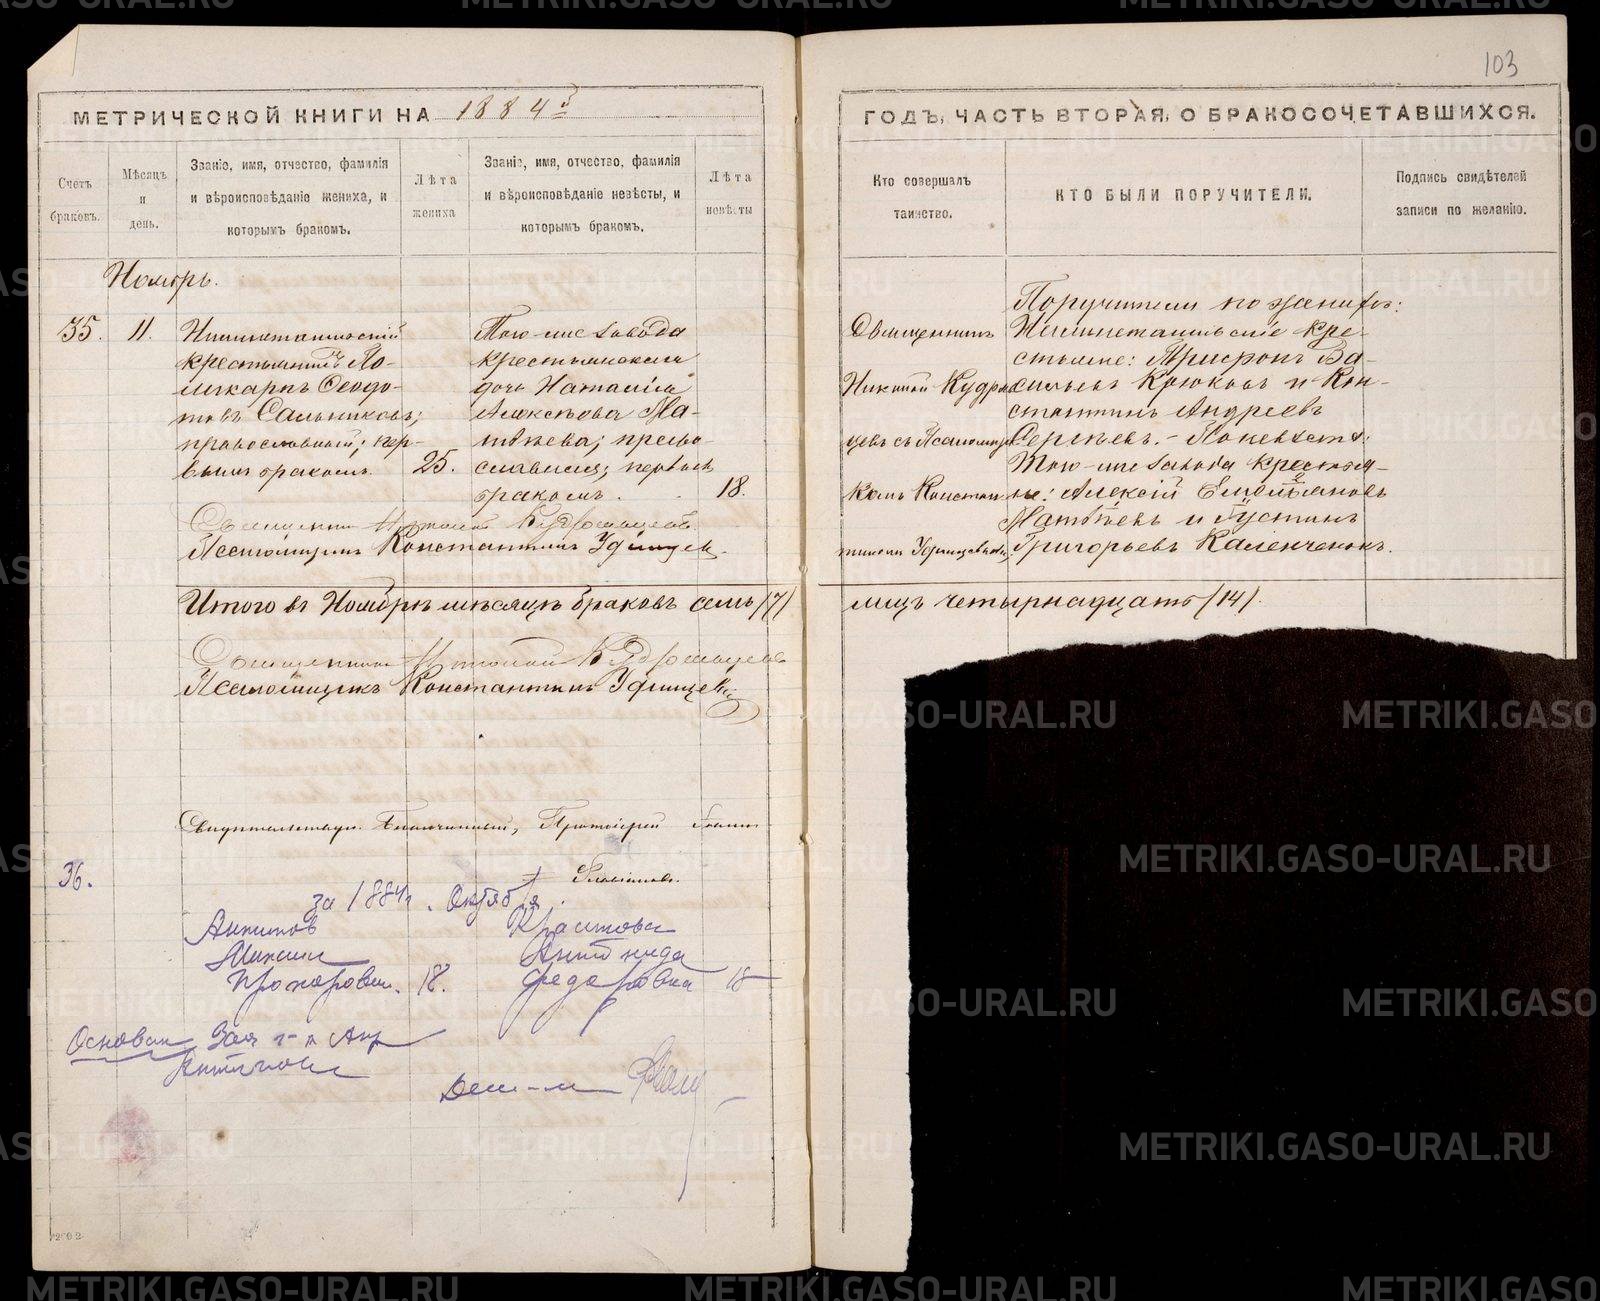 103
МЕТРИЧЕСКОЙ КНИГИ НА 1884й
ГОДЪ, ЧАСТЬ ВТОРАЯ, О БРАКОСОЧЕТАВШИХСЯ.
Счетъ браковъ.
Мѣсяцъ и день.
Званіе, имя, отчество, фамилія
и вѣроисповѣданіе жениха, и
которымъ бракомъ.
Лѣта жениха
Званіе, имя, отчество, фамилія
и вѣроисповѣданіе невѣсты, и
которымъ бракомъ.
Лѣта невѣсты
Кто совершалъ
таинство.
КТО БЫЛИ ПОРУЧИТЕЛИ.
Подпись свидѣтелей
записи по желанію.
Ноябрь.
35.
11.
Нижнетагильскій
крестьянинъ По-
ликарпъ Ѳеодо-
товъ Сальниковъ;
православный; пер-
вымъ бракомъ.
25.
Того-же завода
крестьянская
дочь Наталія
Алексѣева Ма-
твѣева; право-
славная; первымъ
бракомъ.
18.
Священникъ
Николай Кудряв-
цевъ съ Псаломщи-
комъ Констан-
тиномъ
Поручители по женихѣ:
Нижнетагильскіе кре-
стьяне: Трифонъ Ва-
сильевъ Крюковъ и Кон-
стантинъ Андреевъ
Сергѣевъ. - По невѣстѣ:
Того-же завода крестья-
не: Алексій Емельяновъ
Матвѣевъ и Іустинъ
Григорьевъ
Священникъ Николай Кудрявцевъ
Псаломщикъ Константинъ
Итого въ Ноябрѣ мѣсяцѣ браковъ семь /7/
лицъ четырнадцать /14/.
Священникъ Николай Кудрявцевъ
Псаломщикъ Константинъ
Свидѣтельствую. Благочинный, Протоіерей Іоаннъ
36.
за 1884г. Октября.
Антипов
Михаил
Прохорович. 18.
Федоровна 18
Основан.
METRIKI.GASO-URAL.RU
72902